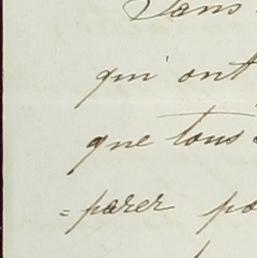 Sans
qui ont
que tous
=parer po